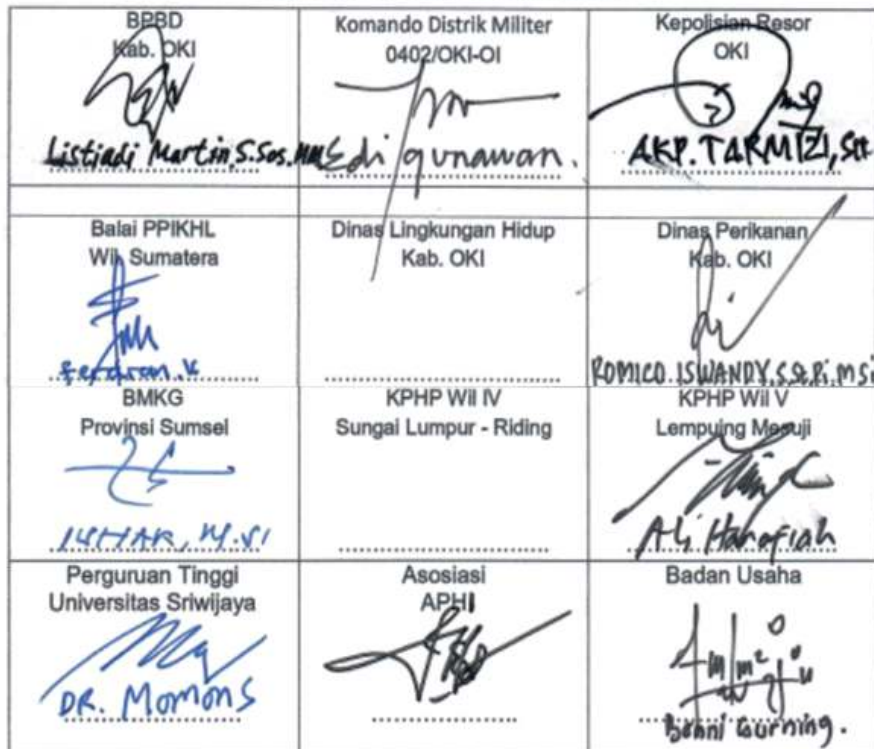 BPBD
Kab. OKI
Listiadi Martin, S.Sos. MM
Komando Distrik Militer
0402/OKI-OI
Edi gunawan.
Kepolisian Resor
OKI
AKP. TARMIZI, SH
Balai PPIKHL
Wil. Sumatera
Ferdian. K
Dinas Lingkungan Hidup
Kab. OKI
Dinas Perikanan
Kab. OKI
ROMICO ISWANDY, S.St.Pi, M.Si
BMKG
Provinsi Sumsel
ISHAK, M.Si
KPHP Wil IV
Sungai Lumpur - Riding
KPHP Wil V
Lempuing Mesuji
Ali Hanafiah
Perguruan Tinggi
Universitas Sriwijaya
DR. MOMONS
Asosiasi
APHI
Badan Usaha
Benni Gurning.